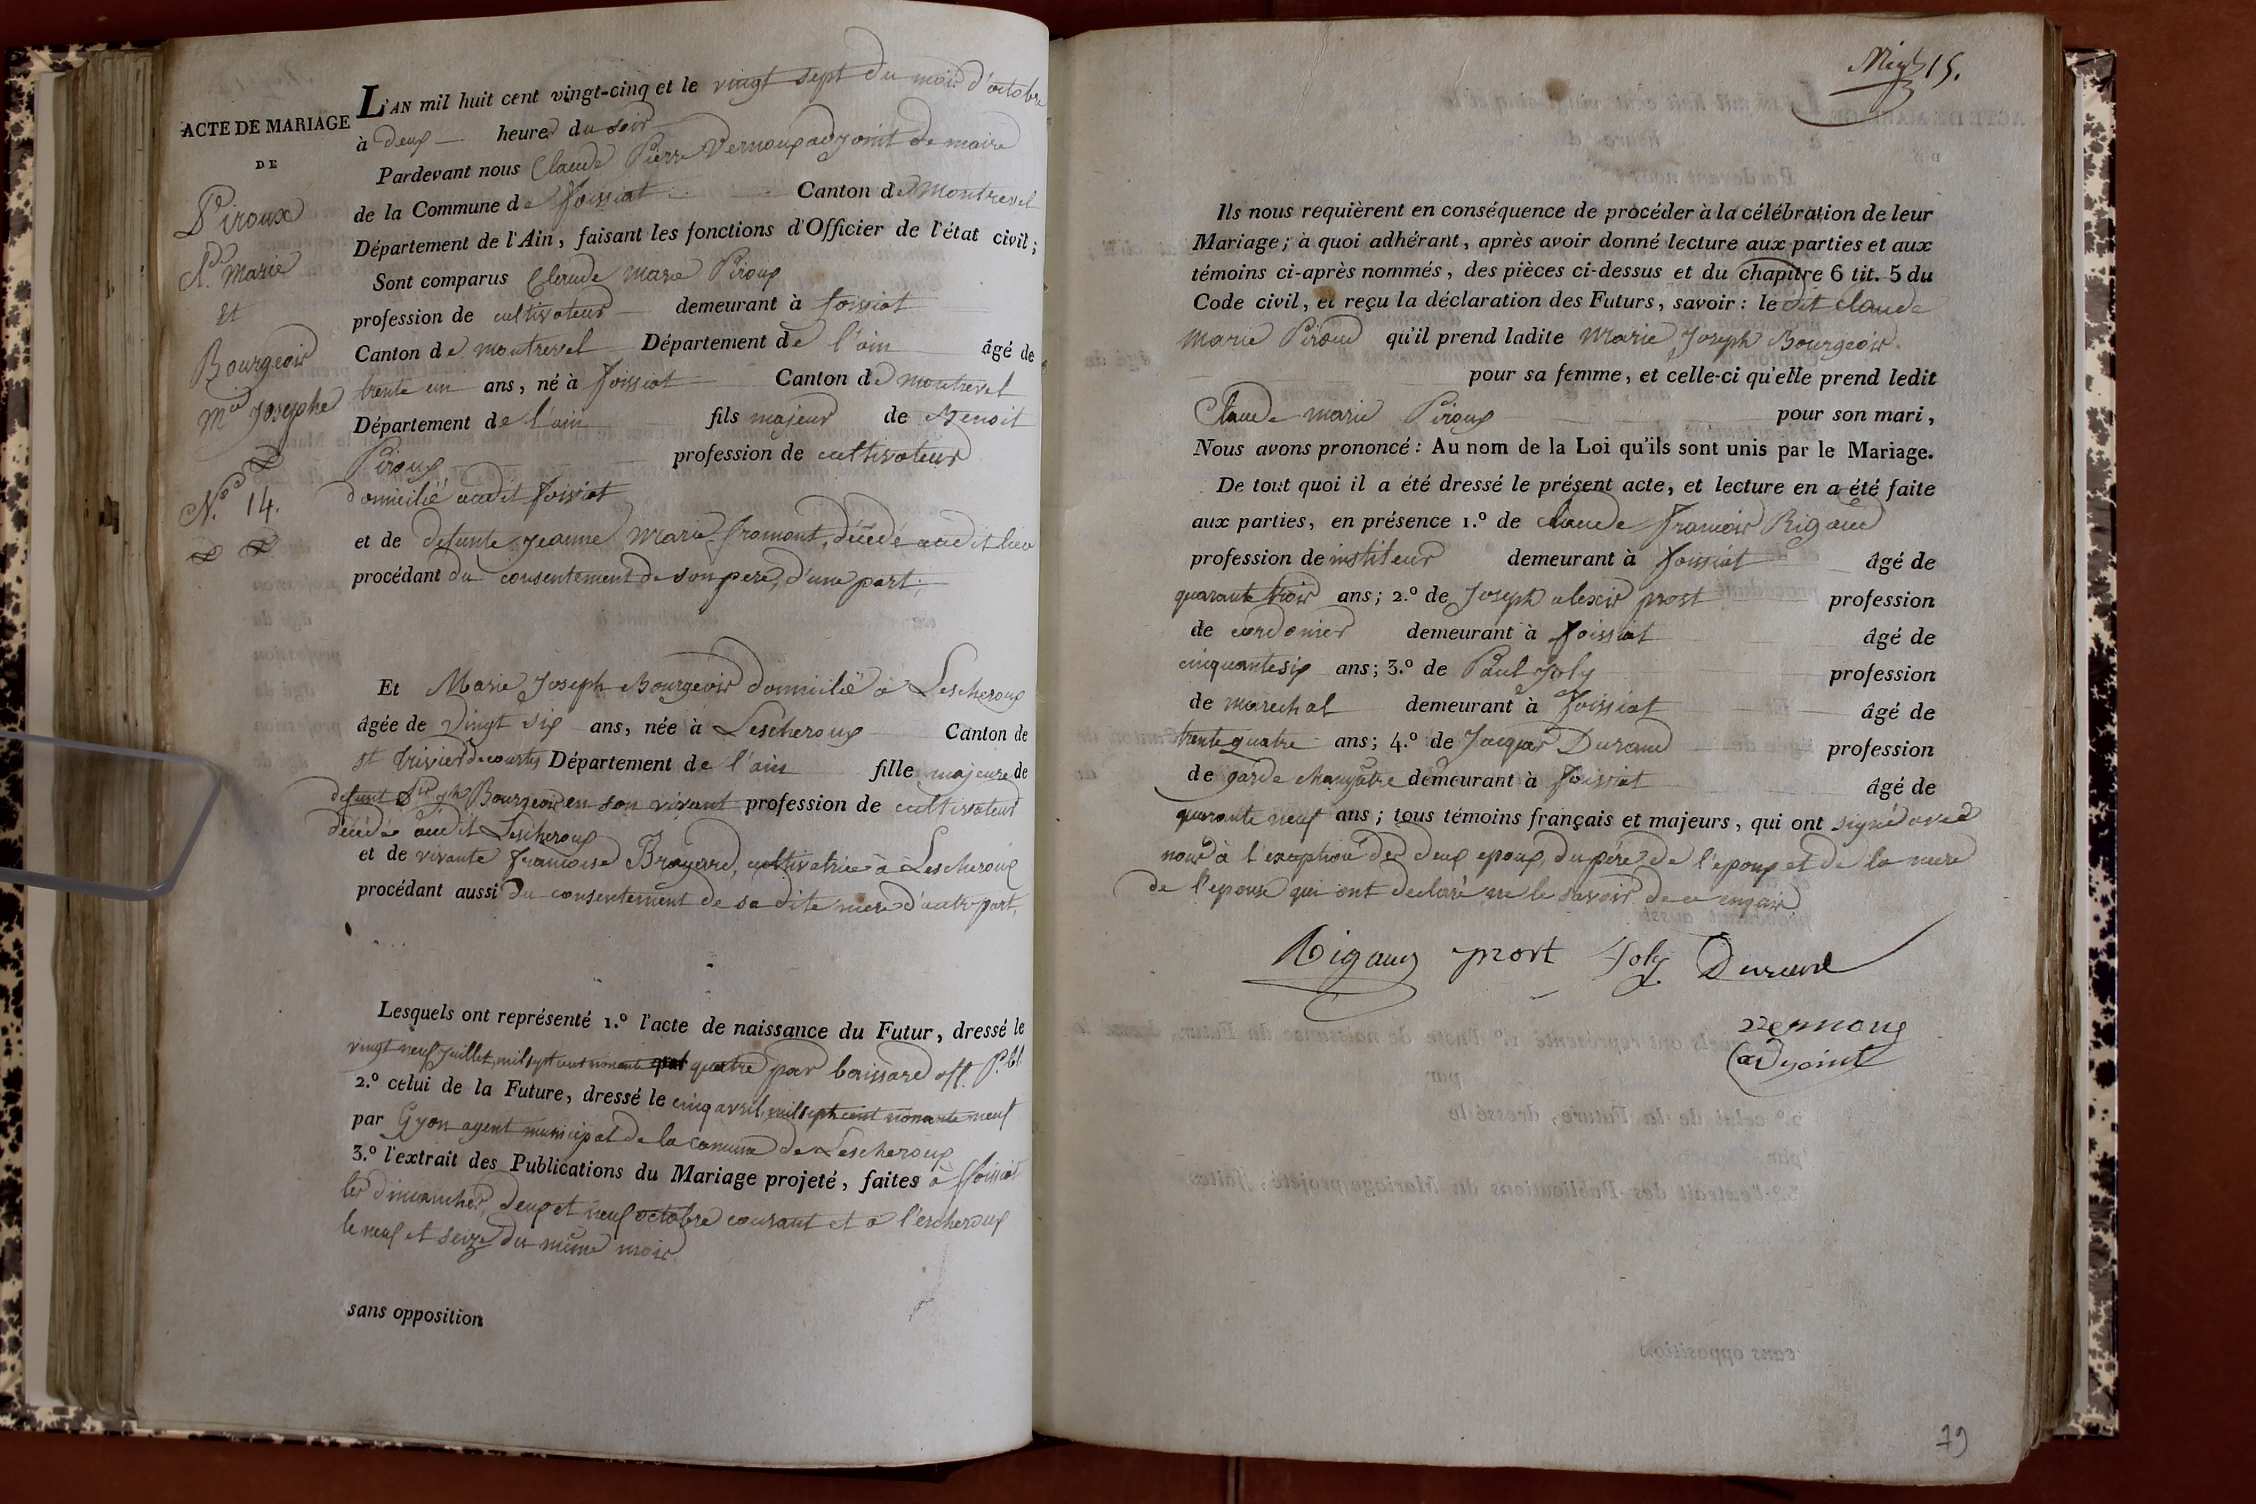 ACTE DE MARIAGE
DE
Piroux
Cl. Marie
Et
Bourgeois
Mie Josephe
N.º 14.
L'AN mil huit cent vingt-cinq et le vingt sept du mois d'octobre
à deux heures du soir
Pardevant nous Claude Pierre Vernoux adjoint de maire
de la Commune de foissiat Canton de Montrevel
Département de l'Ain, faisant les fonctions d'Officier de l'état civil;
Sont comparus Claude marie Piroux
profession de cultivateur demeurant à foissiat
Canton de montrevel Département de l'ain âgé de
trente un ans, né à foissiat Canton de montrevel
Département de l'ain fils majeur de Benoit
Piroux profession de cultivateur
domicilié audit foissiat
et de defunte Jeanne Marie fromont, décédé audit lieu
procédant du consentement de son pere, d'une part;
Et Marie Joseph Bourgeois domicilié à Lescheroux
âgée de vingt six ans, née à Lescheroux Canton de
st trivier de courtes Département de l'ain fille majeure de
defunt Bourgeois en son vivant profession de cultivateur
décédé audit Lescheroux
et de vivante francoise Broyerd, cultivatrice à Lescheroux
procédant aussi du consentement de sa dite mere d'autre part,
Lesquels ont représenté 1.º l'acte de naissance du Futur, dressé le
vingt neuf Juillet mil sept cent nonante quatre par boissard off. P.bl
2.º celui de la Future, dressé le cinq avril mil sept cent nonante neuf
par Gyon agent municipal de la comune de Lescheroux
3.º l'extrait des Publications du Mariage projeté, faites à foissiat
les dimanches deux et neuf octobre courant et a l'escheroux
le neuf et seize du même mois
sans opposition
15.
Ils nous requièrent en conséquence de procéder à la célébration de leur
Mariage; à quoi adhérant, après avoir donné lecture aux parties et aux
témoins ci-après nommés, des pièces ci-dessus et du chapitre 6 tit. 5 du
Code civil, et reçu la déclaration des Futurs, savoir: le dit Claude
marie Piroux qu'il prend ladite Marie Joseph Bourgeois
pour sa femme, et celle-ci qu'elle prend ledit
Claude marie Piroux pour son mari,
Nous avons prononcé: Au nom de la Loi qu'ils sont unis par le Mariage.
De tout quoi il a été dressé le présent acte, et lecture en a été faite
aux parties, en présence 1.º de Claude francois Rigaud
profession de institeur demeurant à foissiat âgé de
quarante trois ans; 2.º de Joseph alexis prost profession
de cordonier demeurant à foissiat âgé de
cinquante six ans; 3.º de Paul Joly profession
de marechal demeurant à foissiat âgé de
trente quatre ans; 4.º de Jacques Durand profession
de garde champêtre demeurant à foissiat âgé de
quarante neuf ans; tous témoins français et majeurs, qui ont signé avec
nous à l'exception des deux epoux, du père de l'epoux et de la mere
de l'epouse qui ont declaré ne le savoir de ce enquis
Rigaud prost Joly Durand
Vernoux
adjoint
79